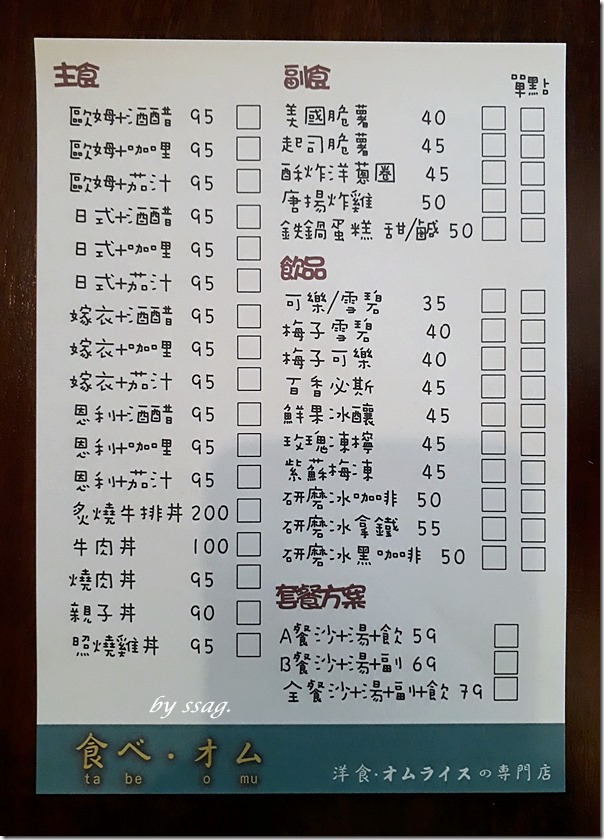 主食
歐姆+酒醋 95
歐姆+咖哩 95
歐姆+茄汁 95
日式+酒醋 95
日式+咖哩 95
日式+茄汁 95
嫁衣+酒醋 95
嫁衣+咖哩 95
嫁衣+茄汁 95
恩利+酒醋 95
恩利+咖哩 95
恩利+茄汁 95
炙燒牛排丼 200
牛肉丼 100
燒肉丼 95
親子丼 90
照燒雞丼 95
副食 單點
美國脆薯 40
起司脆薯 45
酥炸洋蔥圈 45
唐揚炸雞 50
鉄鍋蛋糕 甜/鹹 50
飲品
可樂/雪碧 35
梅子雪碧 40
梅子可樂 40
百香必斯 45
鮮果冰釀 45
玫瑰凍檸 45
紫蘇梅凍 45
研磨冰咖啡 50
研磨冰拿鐵 55
研磨冰黑咖啡 50
套餐方案
A餐沙+湯+飲 59
B餐沙+湯+副 69
全餐沙+湯+副+飲 79
by ssag.
食べ・オム
ta be o mu
洋食・オムライスの専門店